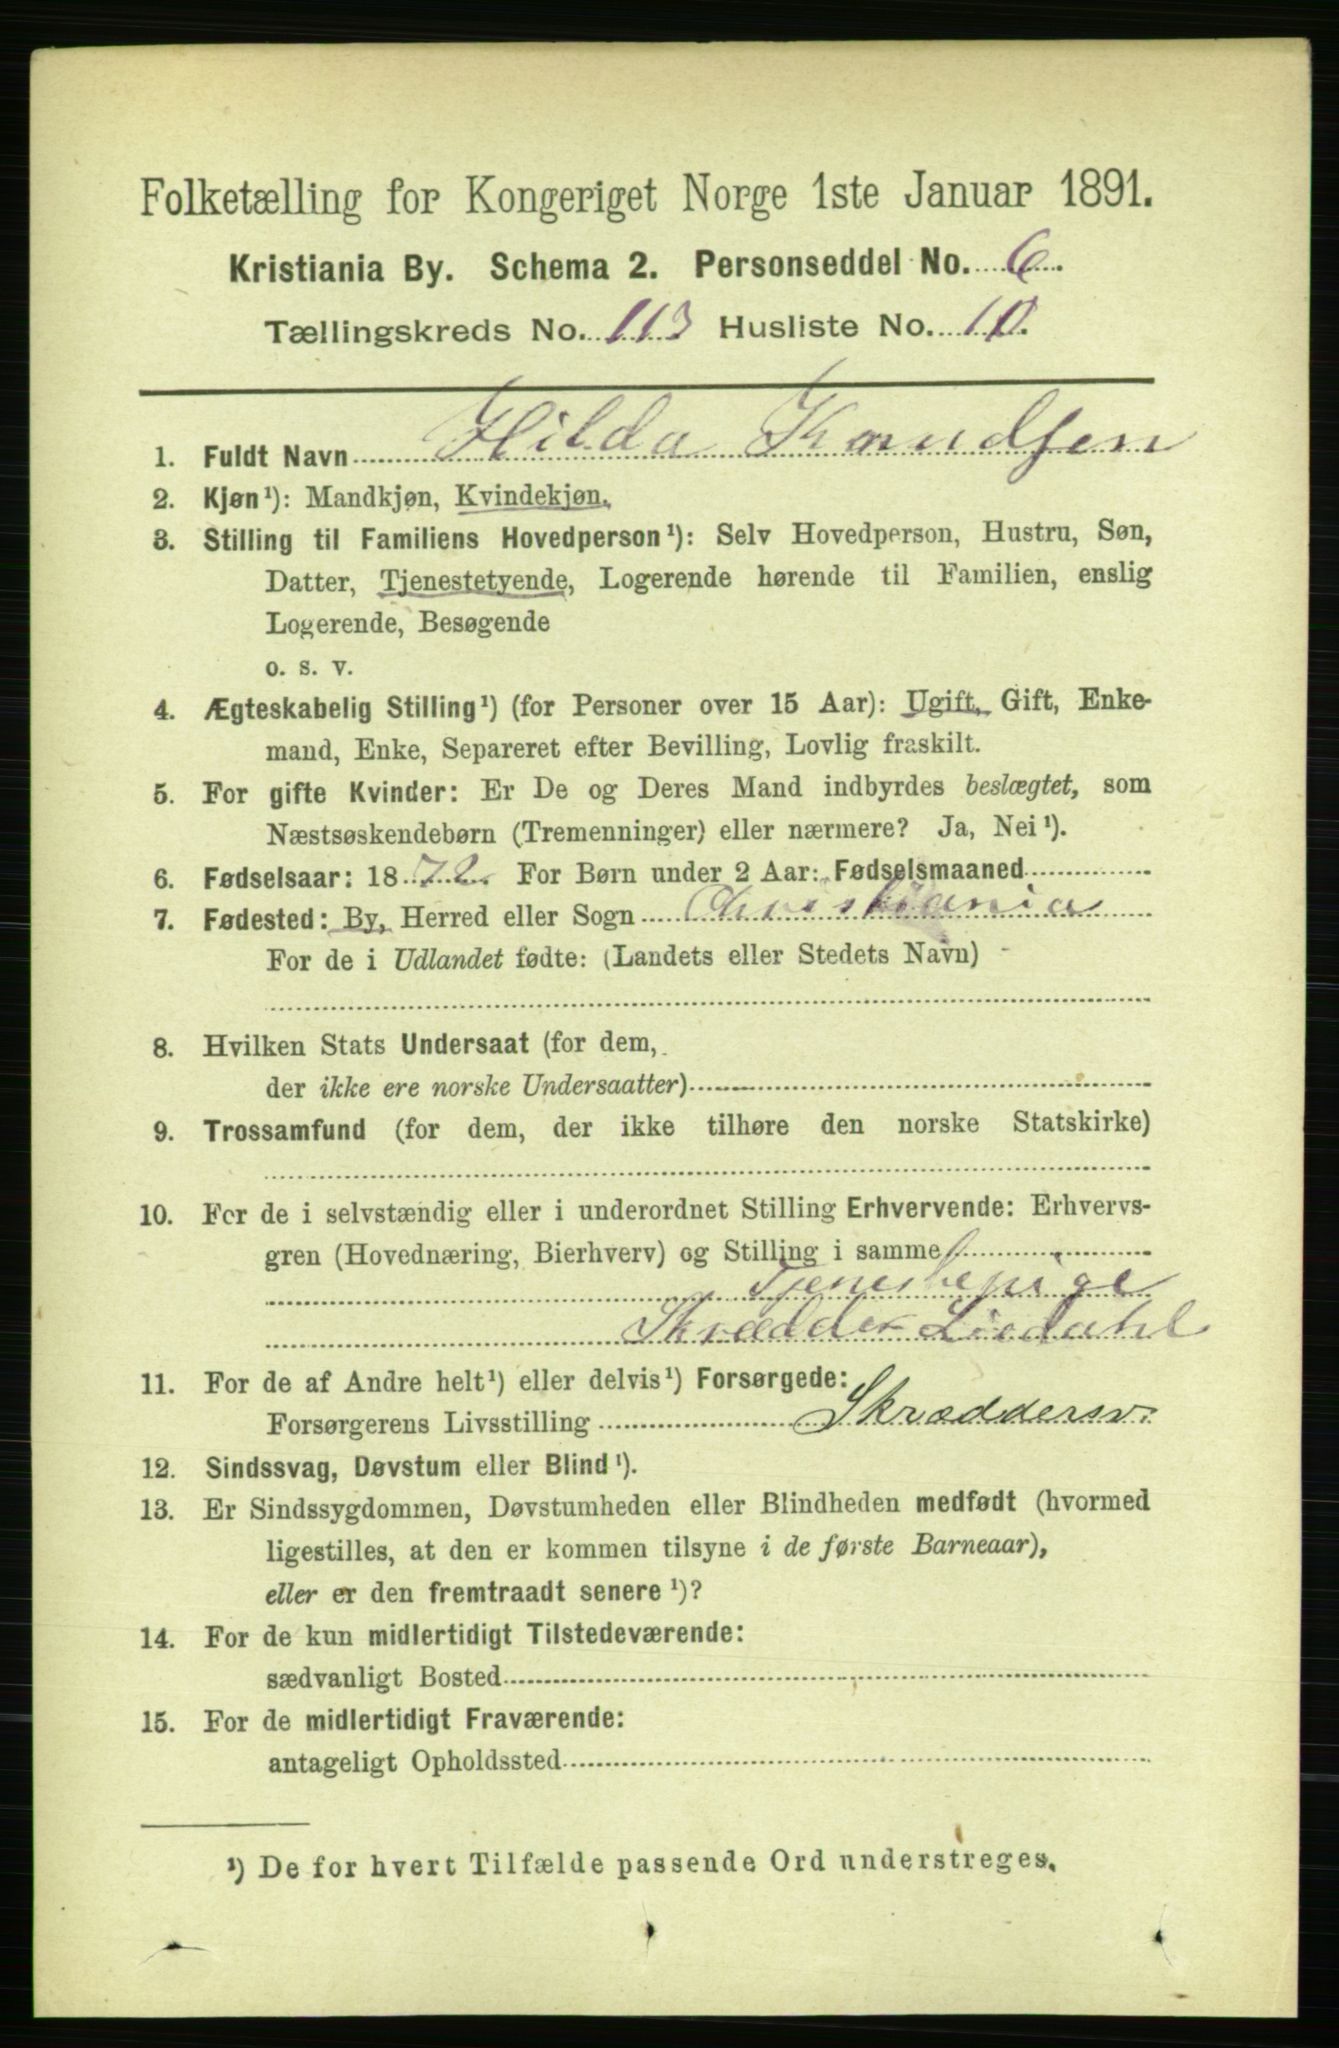 Folketælling for Kongeriget Norge 1ste Januar 1891.
Kristiania By. Schema 2. Personseddel No. 6.
Tællingskreds No. 113 Husliste No. 10.
1. Fuldt Navn Hilda Knudsen
2. Kjøn¹): Mandkjøn, Kvindekjøn.
3. Stilling til Familiens Hovedperson¹): Selv Hovedperson, Hustru, Søn,
Datter, Tjenestetyende, Logerende hørende til Familien, enslig
Logerende, Besøgende
o. s. v.
4. Ægteskabelig Stilling¹) (for Personer over 15 Aar): Ugift, Gift, Enke-
mand, Enke, Separeret efter Bevilling, Lovlig fraskilt.
5. For gifte Kvinder: Er De og Deres Mand indbyrdes beslægtet, som
Næstsøskendebørn (Tremenninger) eller nærmere? Ja, Nei¹).
6. Fødselsaar: 1872. For Børn under 2 Aar: Fødselsmaaned
7. Fødested: By, Herred eller Sogn Christiania
For de i Udlandet fødte: (Landets eller Stedets Navn)
8. Hvilken Stats Undersaat (for dem,
der ikke ere norske Undersaatter)
9. Trossamfund (for dem, der ikke tilhøre den norske Statskirke)
10. For de i selvstændig eller i underordnet Stilling Erhvervende: Erhvervs-
gren (Hovednæring, Bierhverv) og Stilling i samme
Tjenestepige
Skrædder Liedahl
11. For de af Andre helt¹) eller delvis¹) Forsørgede:
Forsørgerens Livsstilling Skræddersv.
12. Sindssvag, Døvstum eller Blind¹).
13. Er Sindssygdommen, Døvstumheden eller Blindheden medfødt (hvormed
ligestilles, at den er kommen tilsyne i de første Barneaar),
eller er den fremtraadt senere¹)?
14. For de kun midlertidigt Tilstedeværende:
sædvanligt Bosted
15. For de midlertidigt Fraværende:
antageligt Opholdssted
¹) De for hvert Tilfælde passende Ord understreges.